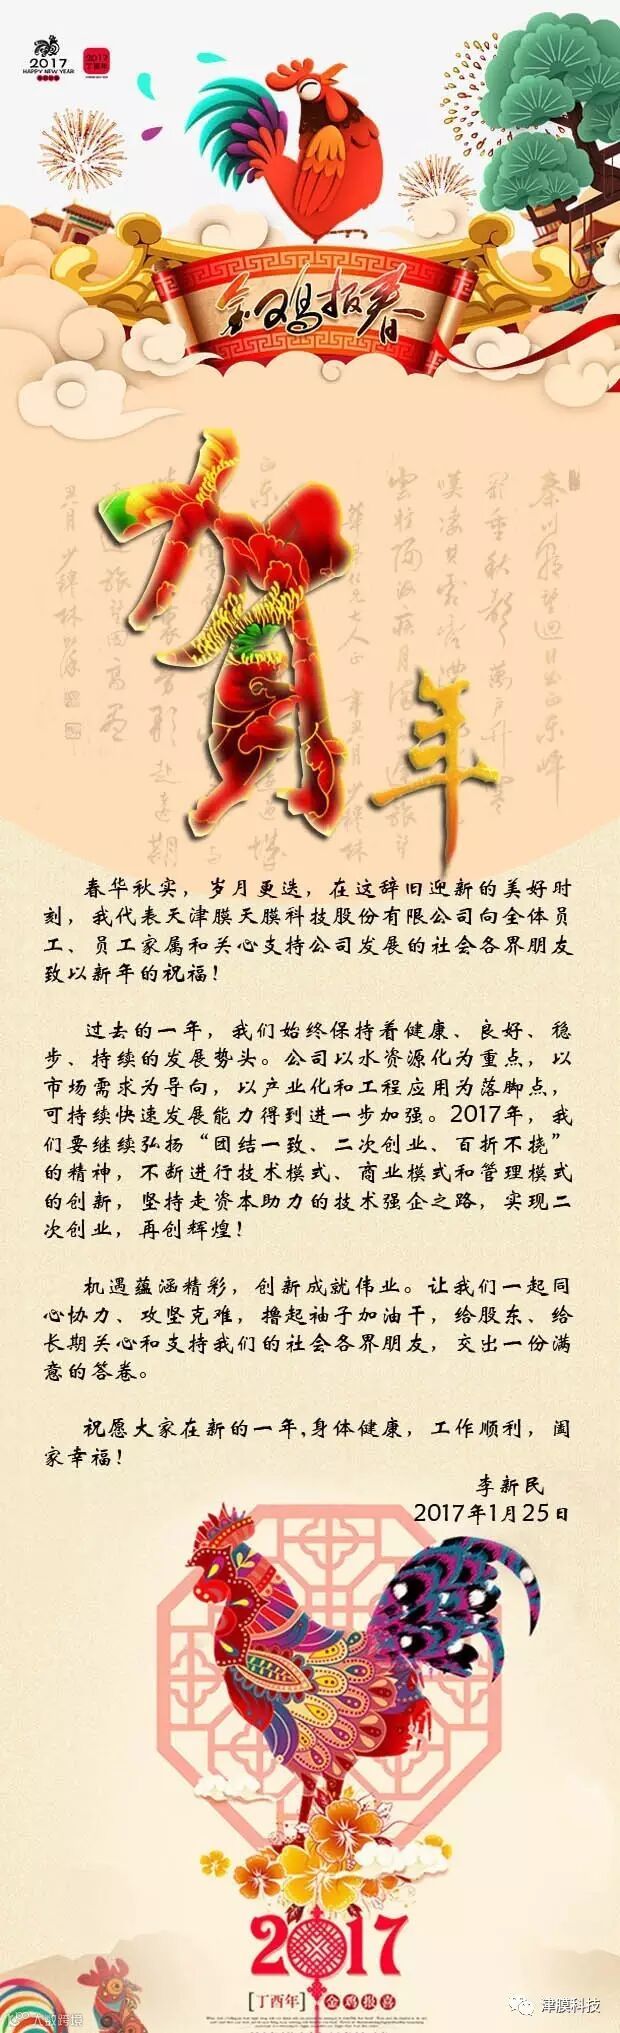 2017
HAPPY NEW YEAR
2017
丁酉年
金鸡报春
贺
年
春华秋实，岁月更迭，在这辞旧迎新的美好时
刻，我代表天津膜天膜科技股份有限公司向全体员
工、员工家属和关心支持公司发展的社会各界朋友
致以新年的祝福！
过去的一年，我们始终保持着健康、良好、稳
步、持续的发展势头。公司以水资源化为重点，以
市场需求为导向，以产业化和工程应用为落脚点，
可持续快速发展能力得到进一步加强。2017年，我
们要继续弘扬“团结一致、二次创业、百折不挠”
的精神，不断进行技术模式、商业模式和管理模式
的创新，坚持走资本助力的技术强企之路，实现二
次创业，再创辉煌！
机遇蕴涵精彩，创新成就伟业。让我们一起同
心协力、攻坚克难，撸起袖子加油干，给股东、给
长期关心和支持我们的社会各界朋友，交出一份满
意的答卷。
祝愿大家在新的一年,身体健康，工作顺利，阖
家幸福！
李新民
2017年1月25日
2017
[丁酉年] 金鸡报喜
大数跨境
津膜科技